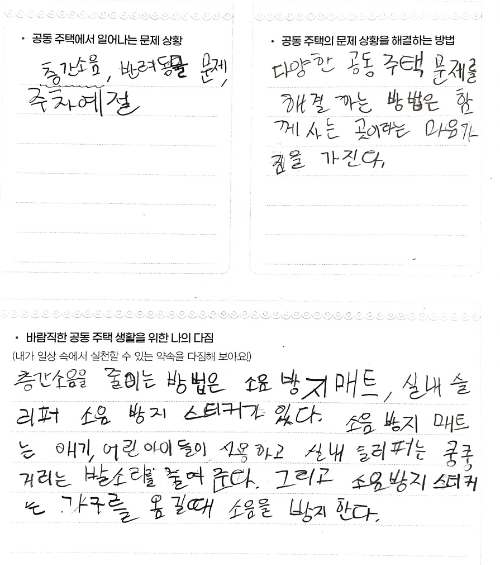 • 공동 주택에서 일어나는 문제 상황
층간소음, 반려동물 문제,
주차예절
• 공동 주택의 문제 상황을 해결하는 방법
다양한 공동 주택 문제를
해결 하는 방법은 함
께 사는 곳이라는 마음가
짐을 가진다.
• 바람직한 공동 주택 생활을 위한 나의 다짐
(내가 일상 속에서 실천할 수 있는 약속을 다짐해 보아요!)
층간소음을 줄이는 방법은 소음 방지매트, 실내 슬
리퍼 소음 방지 스티커가 있다. 소음 방지 매트
는 애기, 어린아이들이 사용하고 실내 슬리퍼는 쿵쿵
거리는 발소리를 줄여 준다. 그리고 소음방지 스티커
는 가구를 옮길때 소음을 방지 한다.